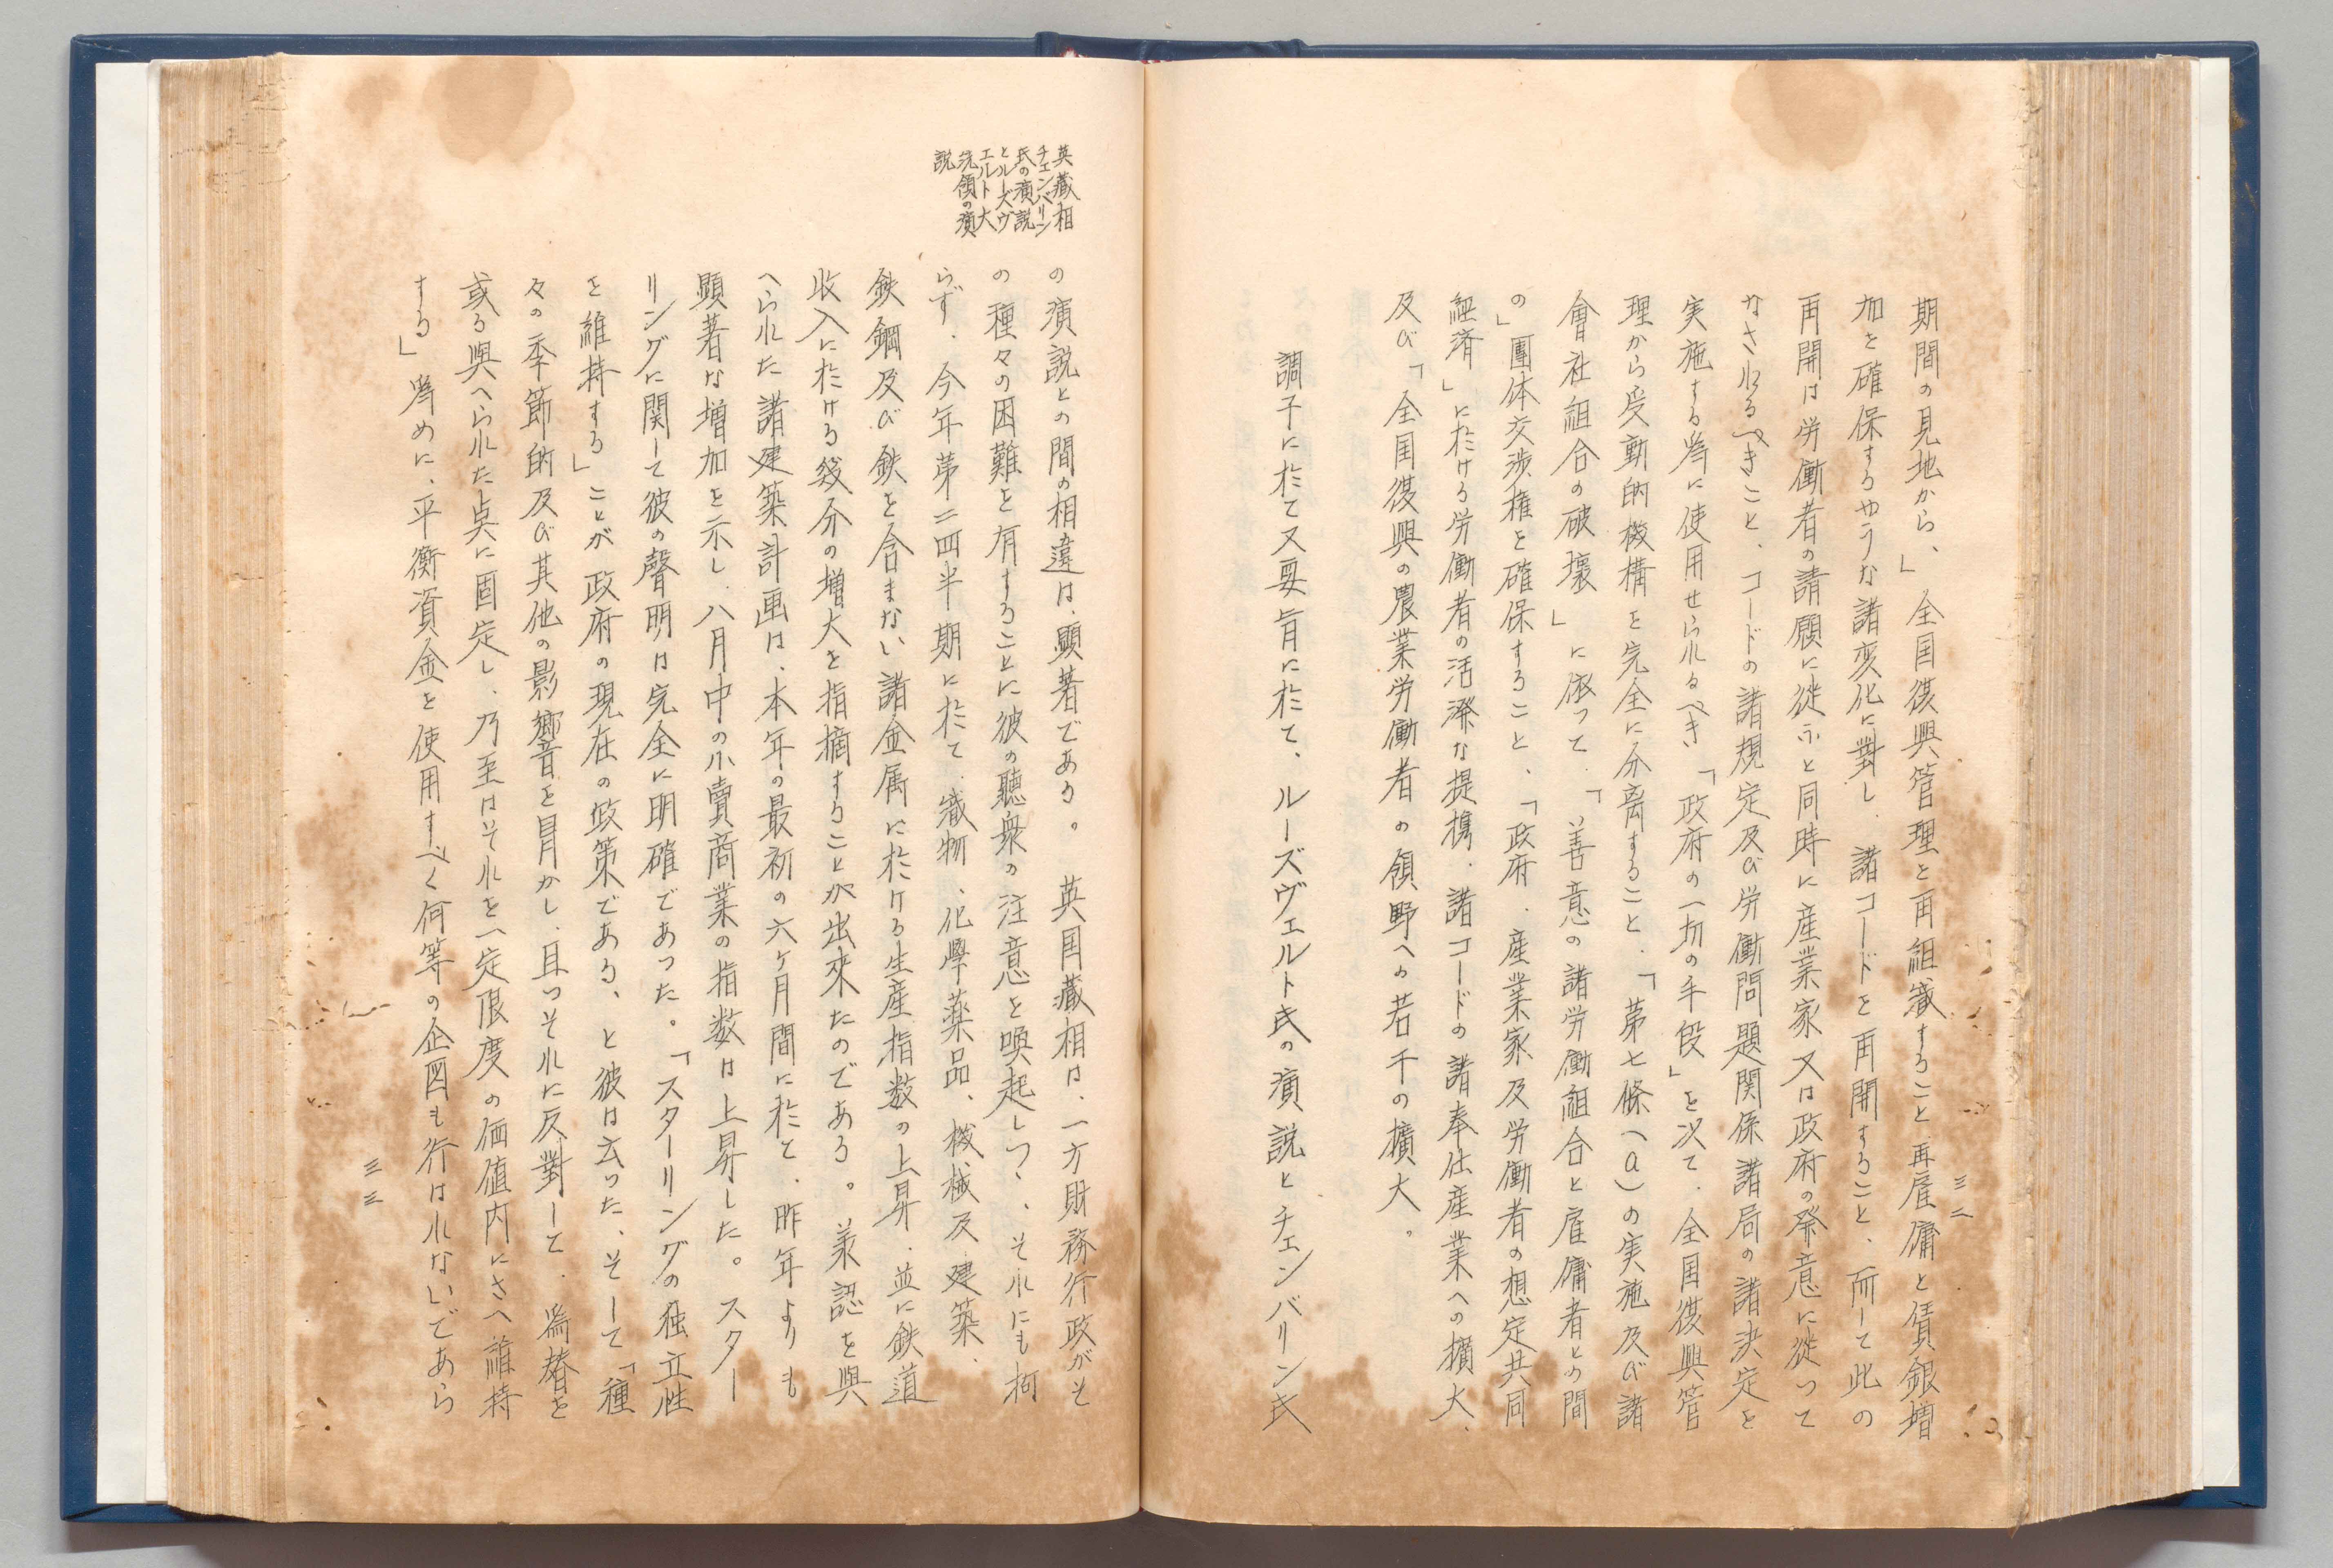 三二
期間の見地から、」全国復興管理と再組織すること再雇傭と賃銀増
加を確保するやうな諸変化に對し、諸コードを再開すること、而して此の
再開は労働者の請願に従ふと同時に産業家又は政府の発意に従って
なさるべきこと、コードの諸規定及び労働問題関係諸局の諸決定を
実施する為に使用せられるべき「政府の一切の手段」を以て、全国復興管
理から受動的機構を完全に分离すること、「第七條(a)の実施及び諸
會社組合の破壊」に依って、「善意の諸労働組合と雇傭者との間
の」團体交渉権を確保すること、「政府、産業家及労働者の想定共同
経済」に於ける労働者の活溌な提携、諸コードの諸奉仕産業への擴大、
及び「全国復興の農業労働者の領野への若干の擴大。
調子に於て又要旨に於て、ルーズヴェルト氏の演説とチェンバリン氏
英藏相
チェンバリン
氏の演説
とルーズヴ
エルト大
統領の演
説
の演説との間の相違は、顕著である。英国藏相は、一方財務行政がそ
の種々の困難を有することに彼の聽衆の注意を喚起しつゝ、それにも拘
らず、今年第二四半期に於て、織物、化學薬品、機械及建築、
鉄鋼及び鉄を含まない諸金属に於ける生産指数の上昇、並に鉄道
收入に於ける幾分の増大を指摘することが出来たのである。承認を與
へられた諸建築計画は、本年の最初の六ヶ月間に於て、昨年よりも
顕著な増加を示し、八月中の小賣商業の指数は上昇した。スター
リングに関して彼の聲明は完全に明確であった。「スターリングの独立性
を維持する」ことが政府の現在の政策である、と彼は云った、そして「種
々の季節的及び其他の影響を冒かし、且つそれに反對して、為替を
或る與へられた点に固定し、乃至はそれを一定限度の価値内にさへ維持
する」為めに、平衡資金を使用すべく何等の企図も行はれないであら
三三